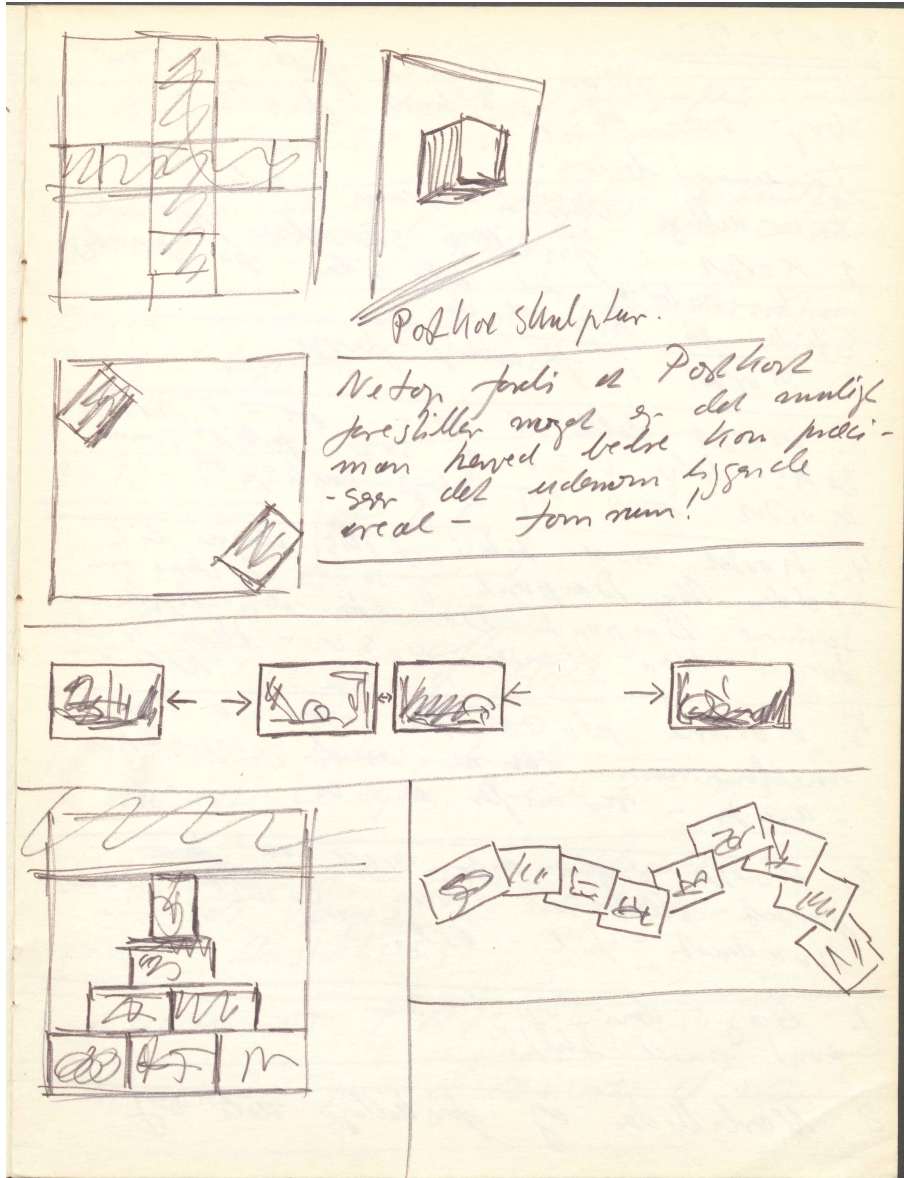 Postkort skulptur.
Netop fordi et Postkort
forestiller noget er det muligt
man herved bedre kan præci-
-ser det udenom liggende
areal - tomrum!